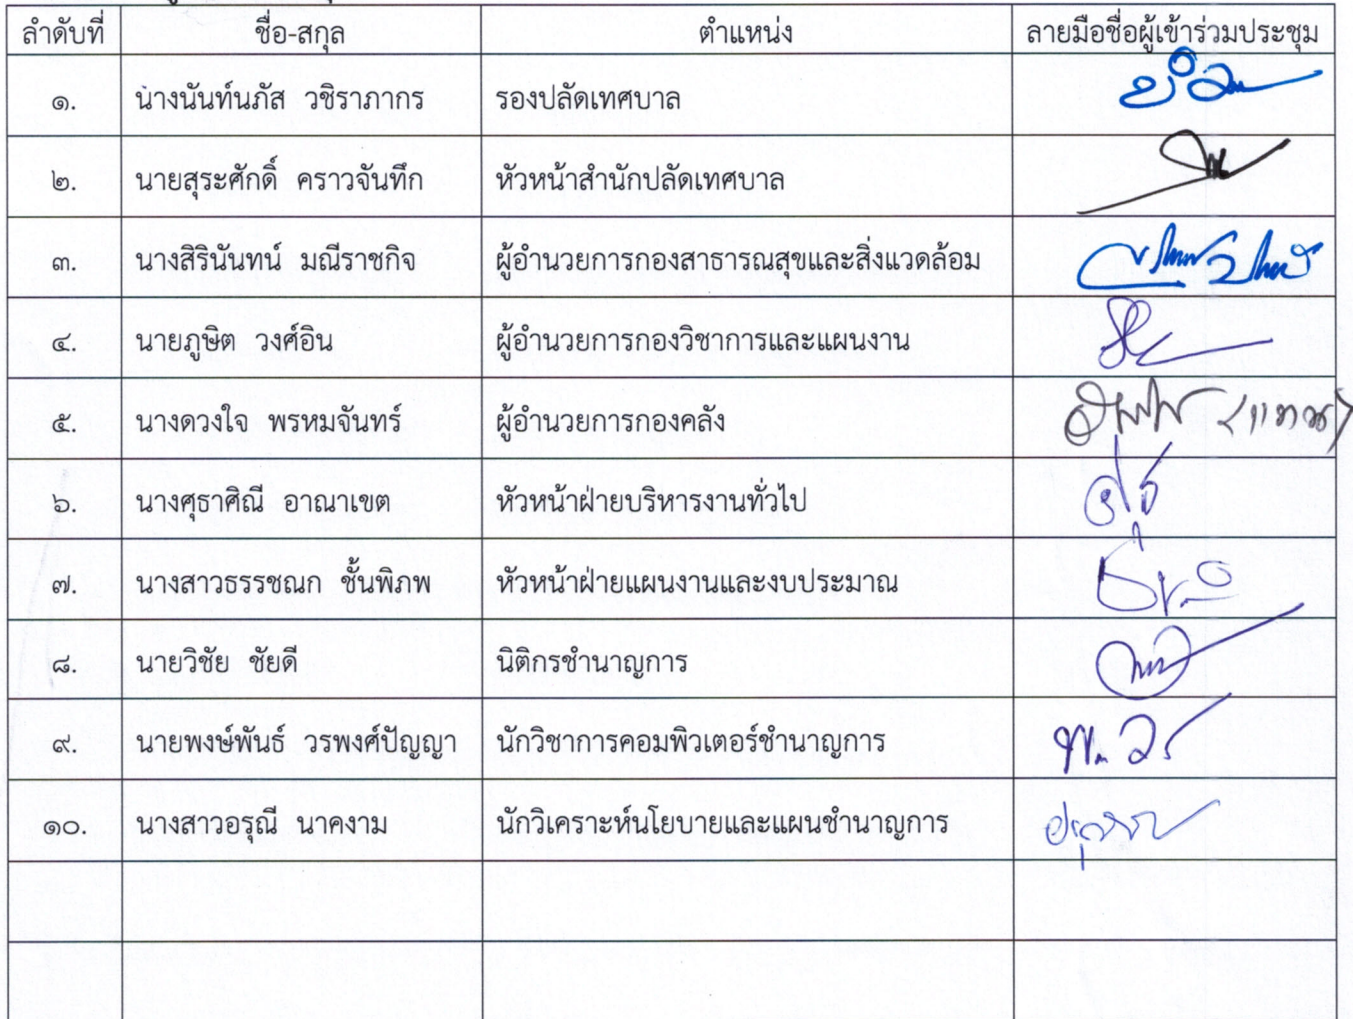 ลำดับที่ ชื่อ-สกุล ตำแหน่ง ลายมือชื่อผู้เข้าร่วมประชุม
๑. นางนันท์นภัส วชิราภากร รองปลัดเทศบาล
๒. นายสุระศักดิ์ คราวจันทึก หัวหน้าสำนักปลัดเทศบาล
๓. นางสิรินันทน์ มณีราชกิจ ผู้อำนวยการกองสาธารณสุขและสิ่งแวดล้อม
๔. นายภูษิต วงศ์อิน ผู้อำนวยการกองวิชาการและแผนงาน
๕. นางดวงใจ พรหมจันทร์ ผู้อำนวยการกองคลัง (แทน)
๖. นางศุธาศิณี อาณาเขต หัวหน้าฝ่ายบริหารงานทั่วไป
๗. นางสาวธรรชณก ชั้นพิภพ หัวหน้าฝ่ายแผนงานและงบประมาณ
๘. นายวิชัย ชัยดี นิติกรชำนาญการ
๙. นายพงษ์พันธ์ วรพงศ์ปัญญา นักวิชาการคอมพิวเตอร์ชำนาญการ
๑๐. นางสาวอรุณี นาคงาม นักวิเคราะห์นโยบายและแผนชำนาญการ